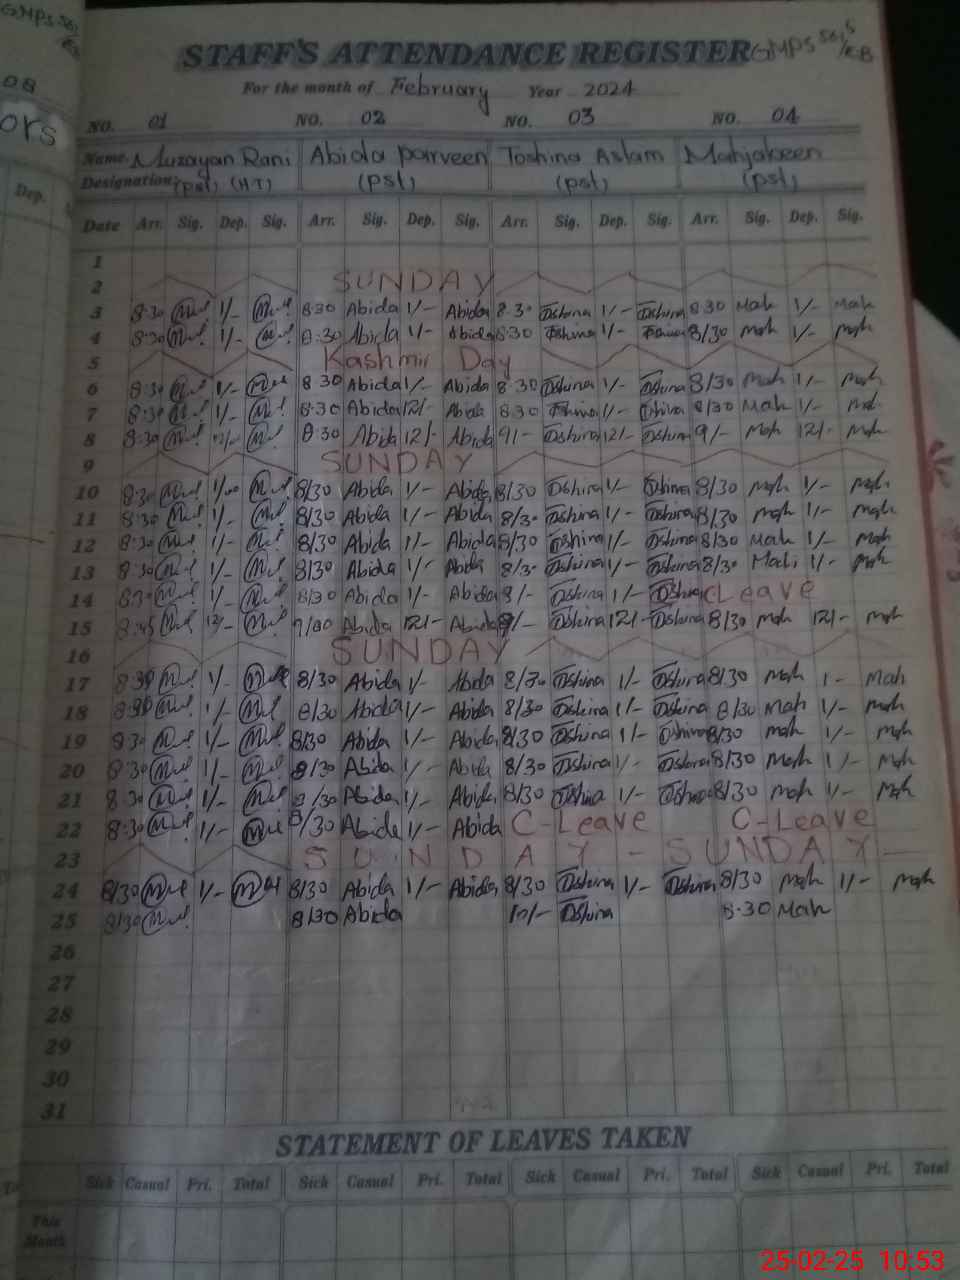 GMPS 561
/EB
08
ors
Dep.
STAFF'S ATTENDANCE REGISTER GMPS 561
/EB
For the month of February Year 2024
NO. 01 NO. 02 NO. 03 NO. 04
Name. Muzayan Rani Abida parveen Toshina Aslam Mahjabeen
Designation: (pst) (HT) (pst) (pst) (pst)
Date Arr. Sig. Dep. Sig. Arr. Sig. Dep. Sig. Arr. Sig. Dep. Sig. Arr. Sig. Dep. Sig.
1
2 SUNDAY
3 8:30 1/- 8:30 Abida 1/- Abida 8:30 Oshina 1/- Oshina 8:30 Mah 1/- Mah
4 8:30 1/- 8:30 Abida 1/- Abida 8:30 Oshina 1/- Oshina 8/30 mah 1/- mah
5 Kashmir Day
6 8:30 1/- 8:30 Abida 1/- Abida 8:30 Oshina 1/- Oshina 8/30 Mah 1/- Mah
7 8:30 1/- 8:30 Abida 12/- Abida 8:30 Oshina 1/- Oshina 8/30 Mah 1/- Mah
8 8:30 12/- 8:30 Abida 12/- Abida 9/- Oshina 12/- Oshina 9/- Mah 12/- Mah
9 SUNDAY
10 8:30 1/00 8/30 Abida 1/- Abida 8/30 Oshina 1/- Oshina 8/30 mah 1/- mah
11 8:30 1/- 8/30 Abida 1/- Abida 8/30 Oshina 1/- Oshina 8/30 mah 1/- mah
12 8:30 1/- 8/30 Abida 1/- Abida 8/30 Oshina 1/- Oshina 8/30 Mah 1/- Mah
13 8:30 1/- 8/30 Abida 1/- Abida 8/30 Oshina 1/- Oshina 8/30 Mah 1/- mah
14 8:30 1/- 8/30 Abida 1/- Abida 8/- Oshina 1/- Oshina cLeave
15 8:45 12/- Abida 12/- Abida 9/- Oshina 12/- Oshina 8/30 mah 12/- mah
16 SUNDAY
17 8:30 1/- 8/30 Abida 1/- Abida 8/30 Oshina 1/- Oshina 8/30 mah 1- Mah
18 8:30 1/- 8/30 Abida 1/- Abida 8/30 Oshina 1/- Oshina 8/30 Mah 1/- mah
19 8:30 1/- 8/30 Abida 1/- Abida 8/30 Oshina 1/- Oshina 8/30 mah 1/- mah
20 8:30 1/- 8/30 Abida 1/- Abida 8/30 Oshina 1/- Oshina 8/30 Mah 1/- mah
21 8:30 1/- 8/30 Abida 1/- Abida 8/30 Oshina 1/- Oshina 8/30 mah 1/- mah
22 8:30 1/- 8/30 Abida 1/- Abida C-Leave C-Leave
23 SUNDAY - SUNDAY
24 8/30 1/- 8/30 Abida 1/- Abida 8/30 Oshina 1/- Oshina 8/30 mah 1/- mah
25 8/30 8/30 Abida 10/- Oshina 8:30 Mah
26
27
28
29
30
31
STATEMENT OF LEAVES TAKEN
Sick Casual Pri. Total Sick Casual Pri. Total Sick Casual Pri. Total Sick Casual Pri. Total
This
Month
25-02-25 10:53